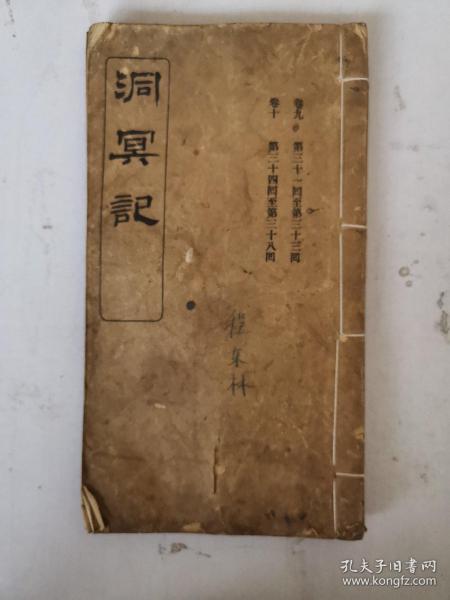 洞冥記
卷九 第三十一回至第三十三回
卷十 第三十四回至第三十八回
孔夫子旧书网
www.kongfz.com